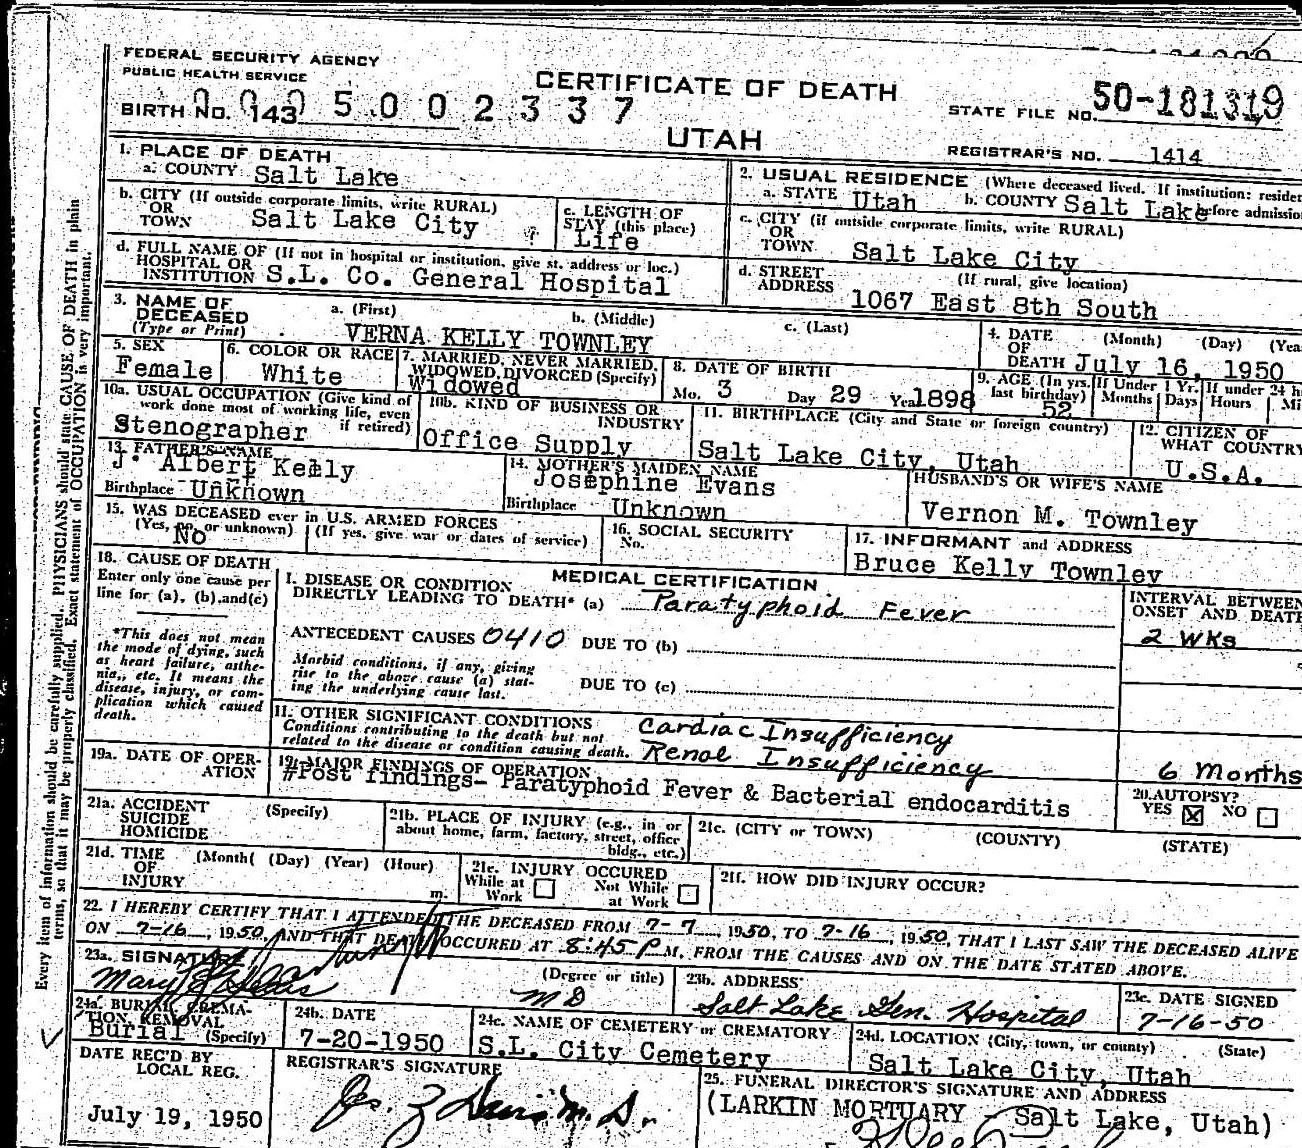 FEDERAL SECURITY AGENCY
PUBLIC HEALTH SERVICE
CERTIFICATE OF DEATH
BIRTH NO. 143
0005002337
STATE FILE NO. 50-181319
UTAH
REGISTRAR'S NO. 1414
1. PLACE OF DEATH
a. COUNTY Salt Lake
2. USUAL RESIDENCE (Where deceased lived. If institution: residen
before admission
a. STATE Utah b. COUNTY Salt Lake
b. CITY (If outside corporate limits, write RURAL)
OR
TOWN Salt Lake City
c. LENGTH OF
STAY (this place)
Life
c. CITY (if outside corporate limits, write RURAL)
OR
TOWN Salt Lake City
d. FULL NAME OF (If not in hospital or institution, give st. address or loc.)
HOSPITAL OR
INSTITUTION S.L. Co. General Hospital
d. STREET
ADDRESS (If rural, give location)
1067 East 8th South
3. NAME OF
DECEASED
(Type or Print)
a. (First) b. (Middle) c. (Last)
VERNA KELLY TOWNLEY
4. DATE
OF
DEATH
(Month) (Day) (Yea
July 16, 1950
5. SEX
Female
6. COLOR OR RACE
White
7. MARRIED, NEVER MARRIED,
WIDOWED, DIVORCED (Specify)
Widowed
8. DATE OF BIRTH
Mo. 3 Day 29 Year 1898
9. AGE (In yrs. last birthday)
52
If Under 1 Yr.
Months Days
If under 24 h
Hours Mi
10a. USUAL OCCUPATION (Give kind of
work done most of working life, even
if retired)
Stenographer
10b. KIND OF BUSINESS OR
INDUSTRY
Office Supply
11. BIRTHPLACE (City and State or foreign country)
Salt Lake City, Utah
12. CITIZEN OF
WHAT COUNTRY
U.S.A.
13. FATHER'S NAME
J. Albert Kelly
Birthplace Unknown
14. MOTHER'S MAIDEN NAME
Josephine Evans
Birthplace Unknown
HUSBAND'S OR WIFE'S NAME
Vernon M. Townley
15. WAS DECEASED ever in U.S. ARMED FORCES
(Yes, no, or unknown) (If yes, give war or dates of service)
No
16. SOCIAL SECURITY
No.
17. INFORMANT and ADDRESS
Bruce Kelly Townley
18. CAUSE OF DEATH
Enter only one cause per
line for (a), (b), and (c)
*This does not mean
the mode of dying, such
as heart failure, asthe-
nia, etc. It means the
disease, injury, or com-
plication which caused
death.
MEDICAL CERTIFICATION
I. DISEASE OR CONDITION
DIRECTLY LEADING TO DEATH* (a) Paratyphoid Fever
ANTECEDENT CAUSES 0410 DUE TO (b)
Morbid conditions, if any, giving
rise to the above cause (a) stat-
ing the underlying cause last.
DUE TO (c)
INTERVAL BETWEEN
ONSET AND DEATH
2 wks
II. OTHER SIGNIFICANT CONDITIONS
Conditions contributing to the death but not
related to the disease or condition causing death.
Cardiac Insufficiency
Renal Insufficiency
6 Months
19a. DATE OF OPER-
ATION
19b. MAJOR FINDINGS OF OPERATION
#Post findings- Paratyphoid Fever & Bacterial endocarditis
20. AUTOPSY?
YES X NO
21a. ACCIDENT
SUICIDE
HOMICIDE
(Specify)
21b. PLACE OF INJURY (e.g., in or
about home, farm, factory, street, office
bldg., etc.)
21c. (CITY or TOWN) (COUNTY) (STATE)
21d. TIME
OF
INJURY
(Month( (Day) (Year) (Hour)
m.
21e. INJURY OCCURED
While at
Work
Not While
at Work
21f. HOW DID INJURY OCCUR?
22. I HEREBY CERTIFY THAT I ATTENDED THE DECEASED FROM 7-7, 1950, TO 7-16, 1950, THAT I LAST SAW THE DECEASED ALIVE
ON 7-16, 1950, AND THAT DEATH OCCURED AT 8:45 P M, FROM THE CAUSES AND ON THE DATE STATED ABOVE.
23a. SIGNATURE
Mary
(Degree or title)
MD
23b. ADDRESS
Salt Lake Gen. Hospital
23c. DATE SIGNED
7-16-50
24a. BURIAL, CREMA-
TION, REMOVAL
(Specify)
Burial
24b. DATE
7-20-1950
24c. NAME OF CEMETERY or CREMATORY
S.L. City Cemetery
24d. LOCATION (City, town, or county) (State)
Salt Lake City, Utah
DATE REC'D BY
LOCAL REG.
July 19, 1950
REGISTRAR'S SIGNATURE
M.D.
25. FUNERAL DIRECTOR'S SIGNATURE AND ADDRESS
(LARKIN MORTUARY - Salt Lake, Utah)
Every item of information should be carefully supplied. PHYSICIANS should state CAUSE OF DEATH in plain
terms, so that it may be properly classified. Exact statement of OCCUPATION is very important.